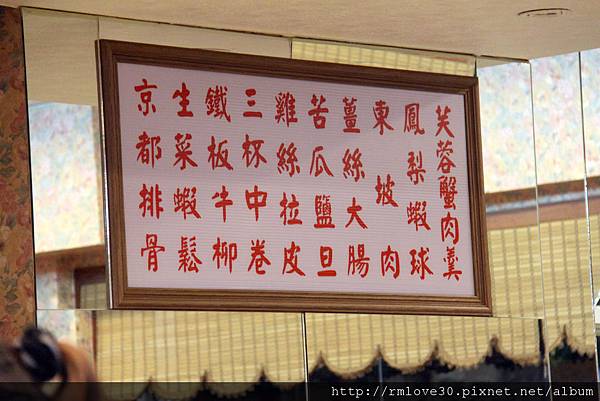 芙蓉蟹肉羹
鳳梨蝦球
東坡肉
薑絲大腸
苦瓜鹽旦
雞絲拉皮
三杯中卷
鐵板牛柳
生菜蝦鬆
京都排骨
http://rmlove30.pixnet.net/album